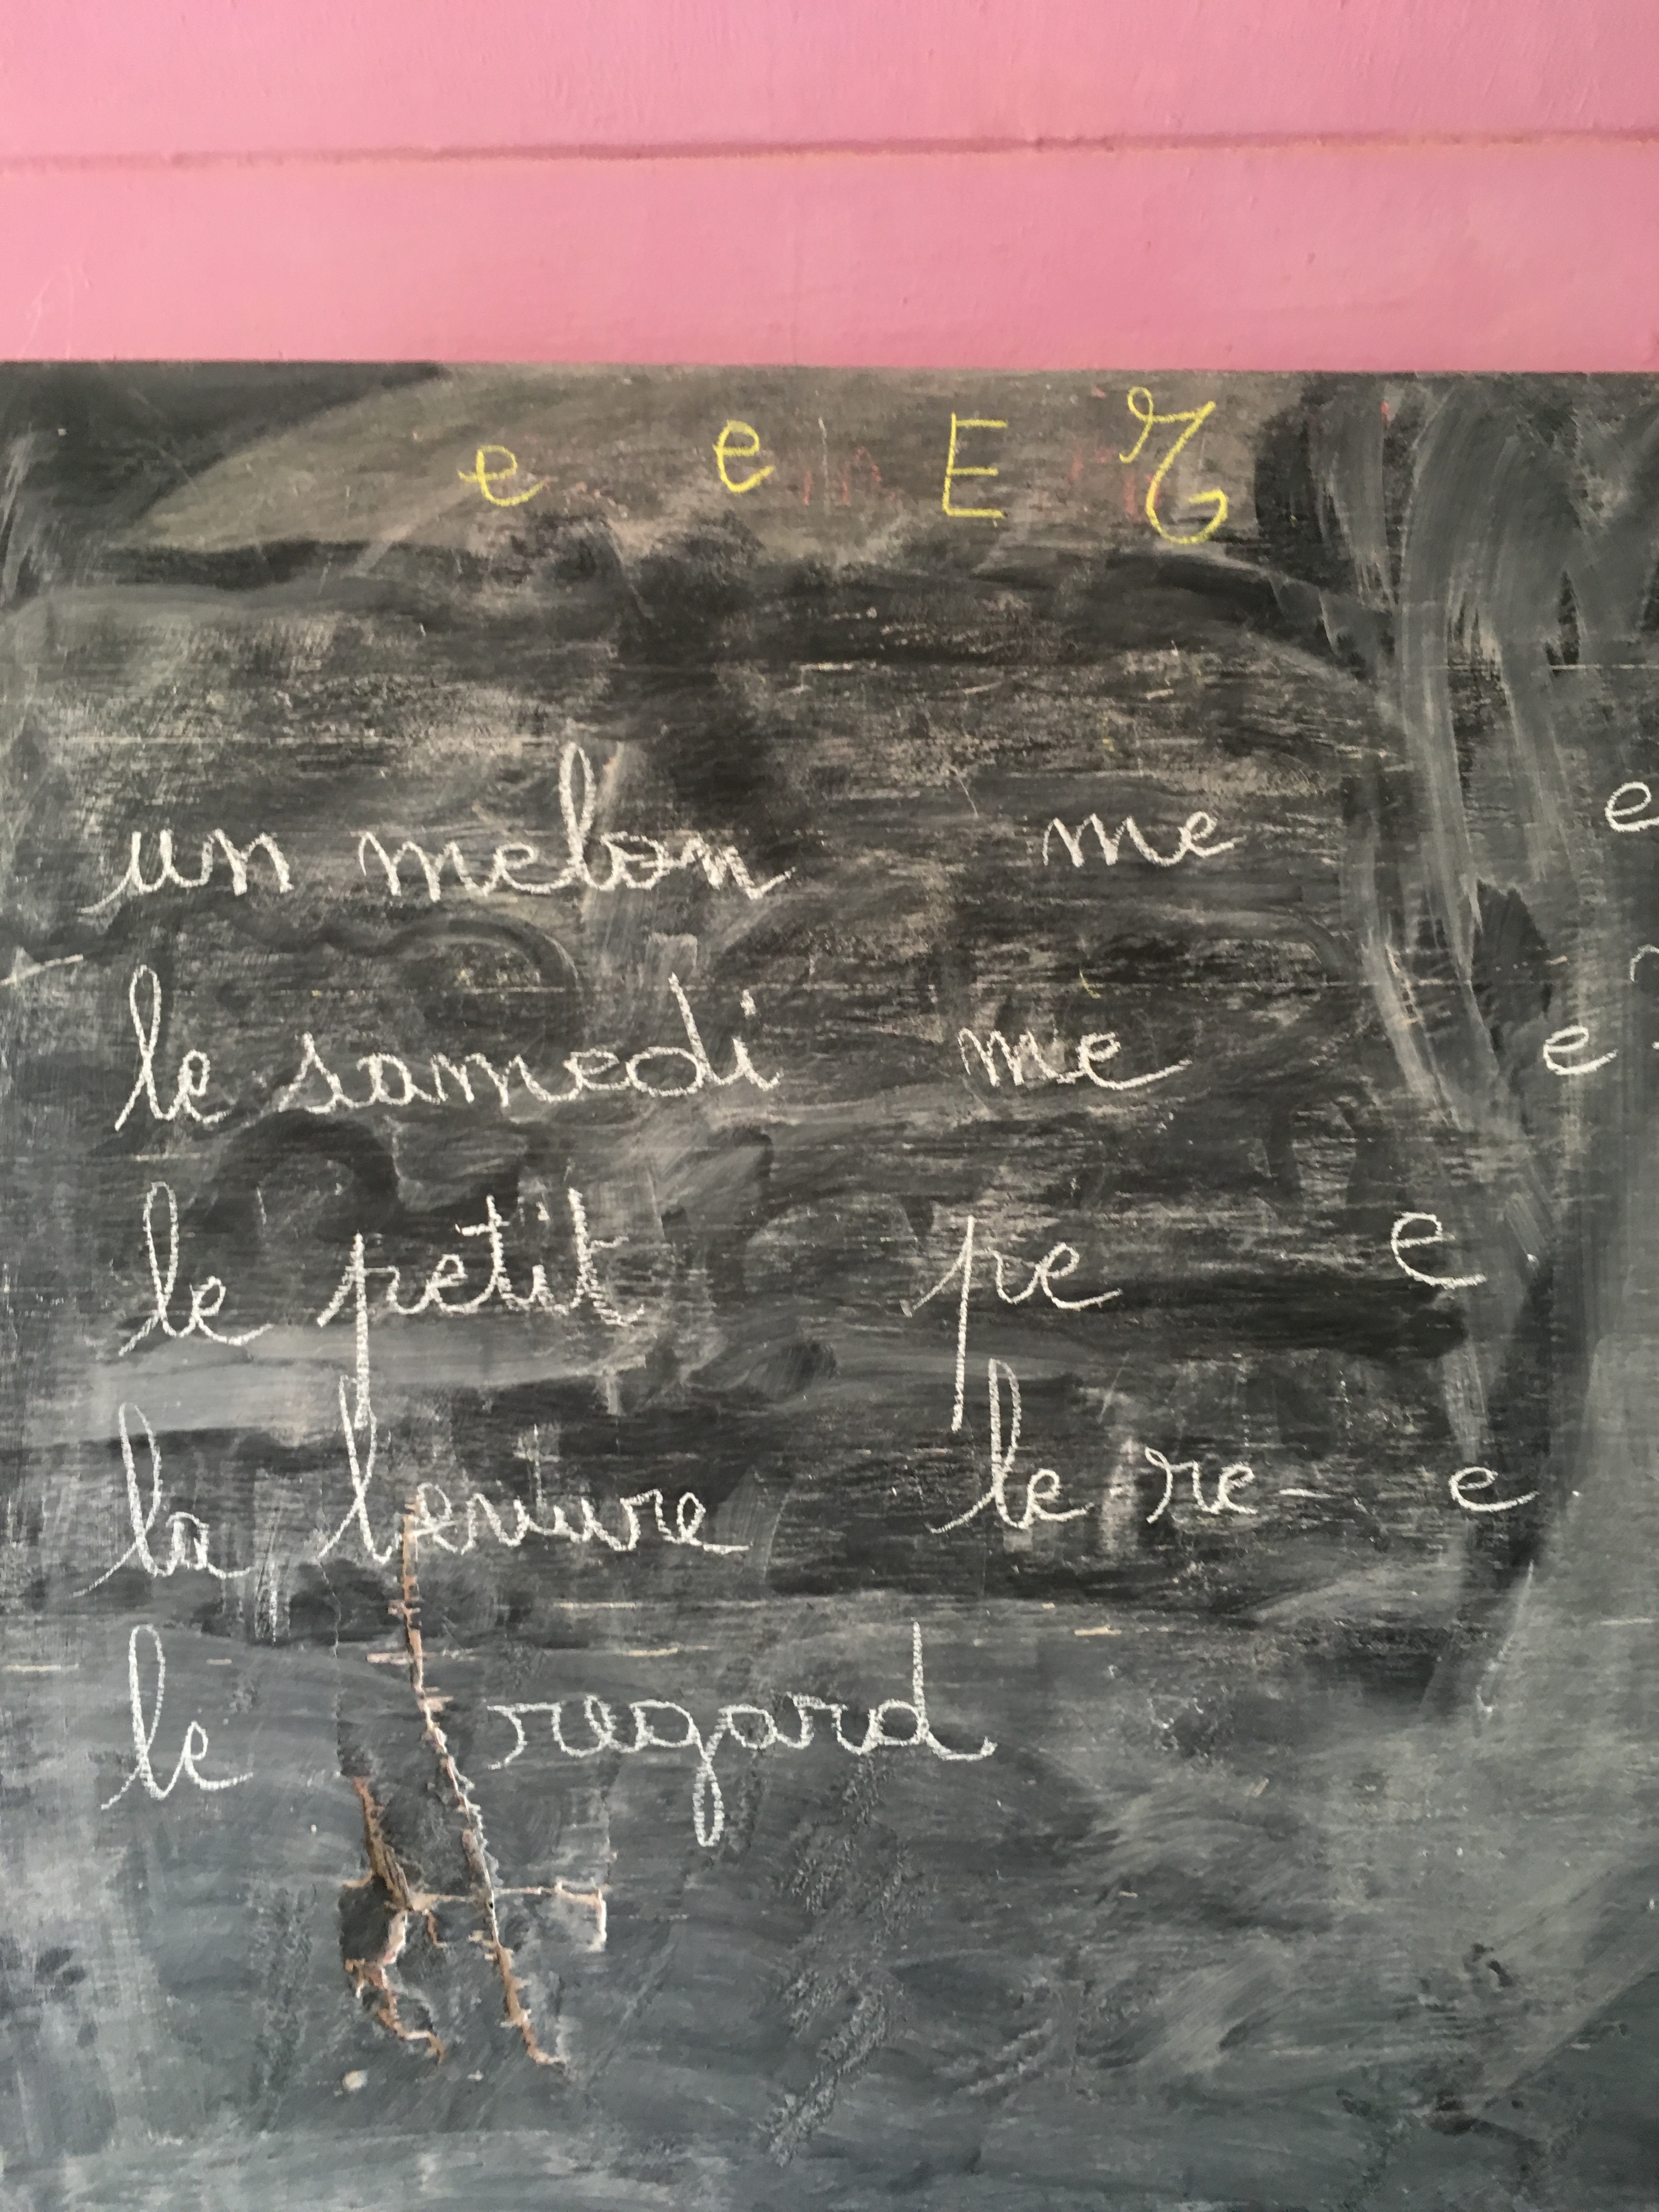 e e E E
un melon me e
le samedi me e
le petit pe e
la levure le re- e
le regard